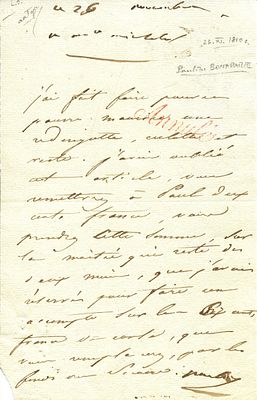 ce 26 novembre
a mr michelot
26. XI. 1810 r.
Pauline BONAPARTE
j'ai fait faire pour ce
pauvre maurice une
redingotte, culotte et
veste. j'avais oublié
cet article, vous
remetterez à Paul deux
cents francs, vous
prendrez cette somme, sur
la moitié qui reste des
deux mois, que j'avais
réservés pour faire un
accompte sur les six cents
francs de carle, que
vous remplacerez, par les
fonds du